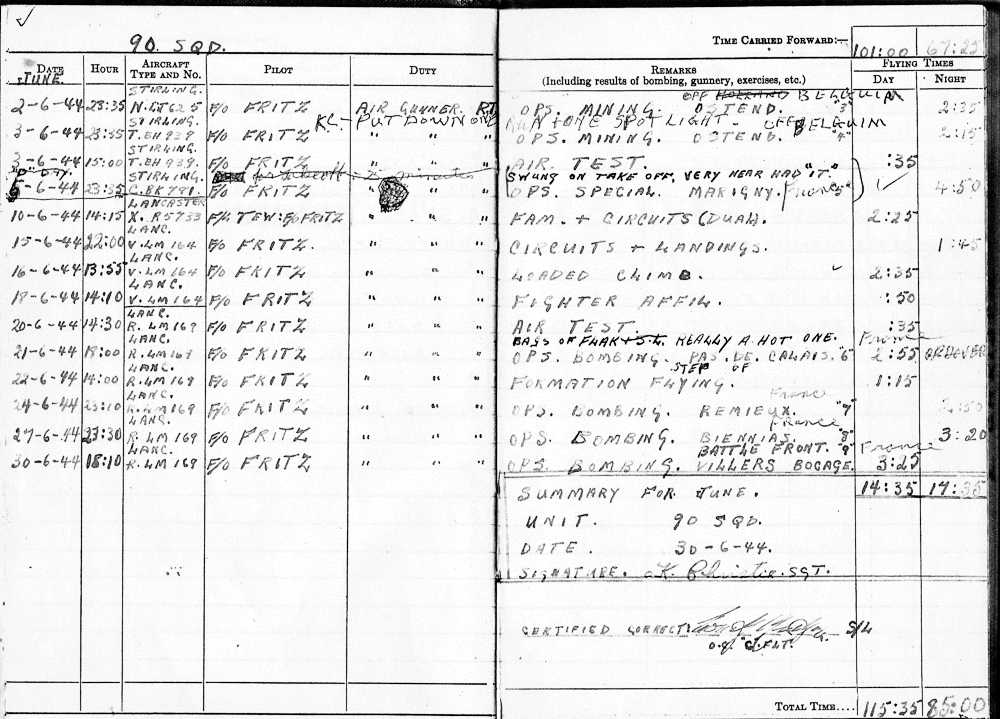 90. SQD.
TIME CARRIED FORWARD:— 101:00 67:25
DATE HOUR AIRCRAFT TYPE AND No. PILOT DUTY REMARKS (Including results of bombing, gunnery, exercises, etc.) FLYING TIMES DAY NIGHT
JUNE.
STIRLING. OFF HOLLAND BELGUIM
2-6-44 23:35 N. LJ625 F/O FRITZ AIR GUNNER. OPS. MINING. OSTEND. "3" 2:35
STIRLING. PUT DOWN ONE SPOT LIGHT - OFF BELGUIM
3-6-44 23:35 T. EH939 F/O FRITZ " " " OPS. MINING. OSTEND. "4" 2:15
STIRLING.
3-6-44 15:00 T. EH939. F/O FRITZ " " " AIR TEST. :35
"D" DAY. STIRLING. minutes SWUNG ON TAKE OFF, VERY NEAR HAD IT".
5-6-44 23:35 C. BK781. F/O FRITZ " " OPS. SPECIAL. MARIGNY. France "5" 4:50
LANCASTER
10-6-44 14:15 X. R5733 F/L TEW: F/O FRITZ " " " FAM. + CIRCUITS (DUAL). 2:25
LANC.
15-6-44 22:00 V. LM164 F/O FRITZ. " " " CIRCUITS + LANDINGS. 1:45
LANC.
16-6-44 13:55 V. LM164 F/O FRITZ " " " LOADED CLIMB. 2:35
LANC.
18-6-44 14:10 V. LM164 F/O FRITZ " " " FIGHTER AFFIL. :50
LANC.
20-6-44 14:30 R. LM169 F/O FRITZ " " " AIR TEST. :35
LANC. BAGS OF FLAK + S.L. REALLY A HOT ONE. France
21-6-44 18:00 R. LM169 F/O FRITZ " " " OPS. BOMBING. PAS. DE. CALAIS. "6" 2:55 OR DOVER
LANC. STEP OF
22-6-44 14:00 R. LM169 F/O FRITZ " " " FORMATION FLYING. 1:15
LANC. France
24-6-44 23:10 R. LM169 F/O FRITZ " " " OPS. BOMBING. REMIEUX. "7"
LANC. France
27-6-44 23:30 R. LM169 F/O FRITZ " " " OPS. BOMBING. BIENNIAS. "8" 3:20
LANC. BATTLE FRONT. "9" France
30-6-44 18:10 R. LM169 F/O FRITZ " " " OPS. BOMBING. VILLERS BOCAGE. 3:25
SUMMARY FOR JUNE. 14:35 17:35
UNIT. 90 SQD.
DATE. 30-6-44.
SIGNATURE. K. Christie. SGT.
CERTIFIED CORRECT: S/L
O.C. "C" FLT.
TOTAL TIME.... 115:35 85:00